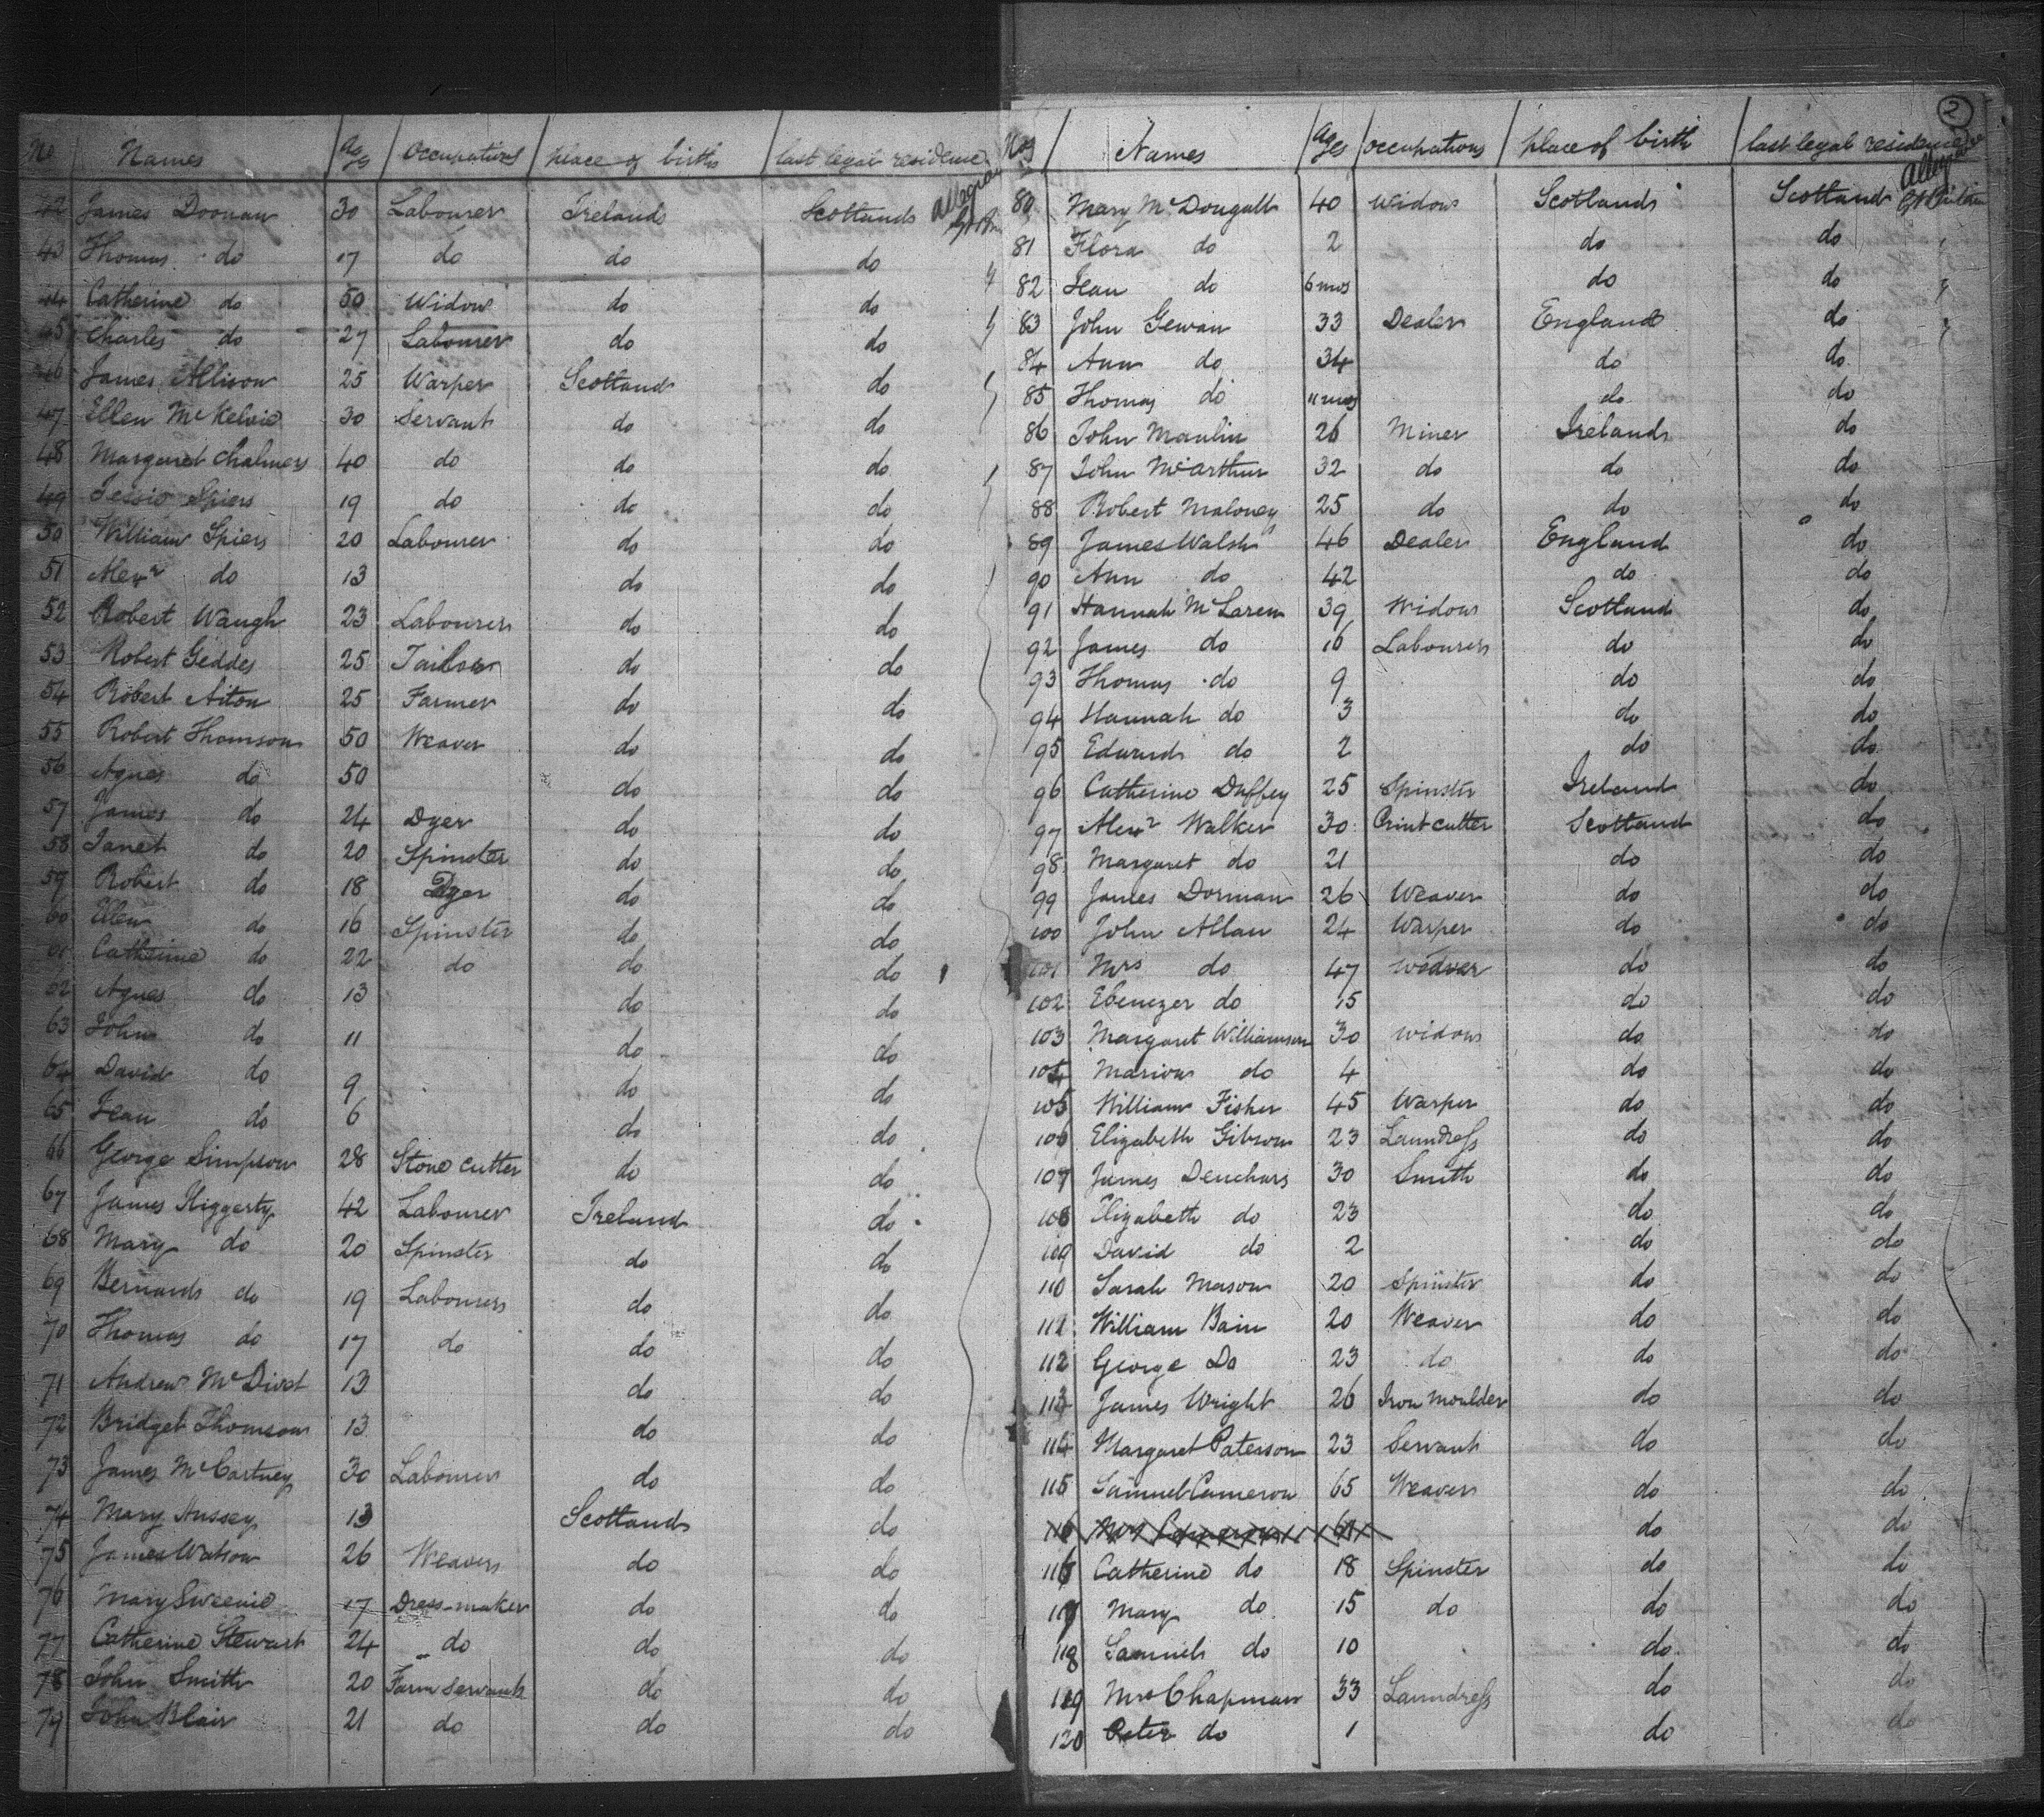 No Names Ages Occupations place of births last legal residence
Allegian
42 James Doonan 30 Labourer Ireland Scotland Gt Br
43 Thomas do 17 do do do
44 Catherine do 50 Widow do do
45 Charles do 27 Labourer do do
46 James Allison 25 Warper Scotland do
47 Ellen McKelvie 30 Servant do do
48 Margaret Chalmers 40 do do do
49 Jessie Spiers 19 do do do
50 William Spiers 20 Labourer do do
51 Alexr do 13 do do
52 Robert Waugh 23 Labourer do do
53 Robert Geddes 25 Tailor do do
54 Robert Aiton 25 Farmer do do
55 Robert Thomson 50 Weaver do do
56 Agnes do 50 do do
57 James do 24 Dyer do do
58 Janet do 20 Spinster do do
59 Robert do 18 Dyer do do
60 Ellen do 16 Spinster do do
61 Catherine do 22 do do do
62 Agnes do 13 do do
63 John do 11 do do
64 David do 9 do do
65 Jean do 6 do do
66 George Simpson 28 Stone cutter do do
67 James Higgerty 42 Labourer Ireland do
68 Mary do 20 Spinster do do
69 Bernard do 19 Labourer do do
70 Thomas do 17 do do do
71 Andrew McDivot 13 do do
72 Bridget Thomson 13 do do
73 James McCartney 30 Labourer do do
74 Mary Hussey 13 Scotland do
75 James Watson 26 Weaver do do
76 Mary Sweenie 17 Dress-maker do do
77 Catherine Stewart 24 do do do
78 John Smith 20 Farm servant do do
79 John Blair 21 do do do
2
Nos Names Ages occupations place of birth last legal residence
80 Mary McDougall 40 Widow Scotland Scotland Gt Britain
81 Flora do 2 do do
82 Jean do 6 mos do do
83 John Gewan 33 Dealer England do
84 Ann do 34 do do
85 Thomas do 11 mos do do
86 John Manlin 26 Miner Ireland do
87 John McArthur 32 do do do
88 Robert Maloney 25 do do do
89 James Walsh 46 Dealer England do
90 Ann do 42 do do
91 Hannah McLaren 39 Widow Scotland do
92 James do 16 Labourer do do
93 Thomas do 9 do do
94 Hannah do 3 do do
95 Edward do 2 do do
96 Catherine Duffey 25 Spinster Ireland do
97 Alexr Walker 30 Print cutter Scotland do
98 Margaret do 21 do do
99 James Dorman 26 Weaver do do
100 John Allan 24 Warper do do
101 Mrs do 47 weaver do do
102 Ebenezer do 15 do do
103 Margaret Williamson 30 widow do do
104 Marion do 4 do do
105 William Fisher 45 Warper do do
106 Elizabeth Gibson 23 Laundress do do
107 James Deuchars 30 Smith do do
108 Elizabeth do 23 do do
109 David do 2 do do
110 Sarah Mason 20 Spinster do do
111 William Bain 20 Weaver do do
112 George Do 23 do do do
113 James Wright 26 Iron Moulder do do
114 Margaret Paterson 23 Servant do do
115 Samuel Cameron 65 Weaver do do
116 Mrs Cameron do do
116 Catherine do 18 Spinster do do
117 Mary do 15 do do do
118 Samuel do 10 do do
119 Mrs Chapman 33 Laundress do do
120 Peter do 1 do do